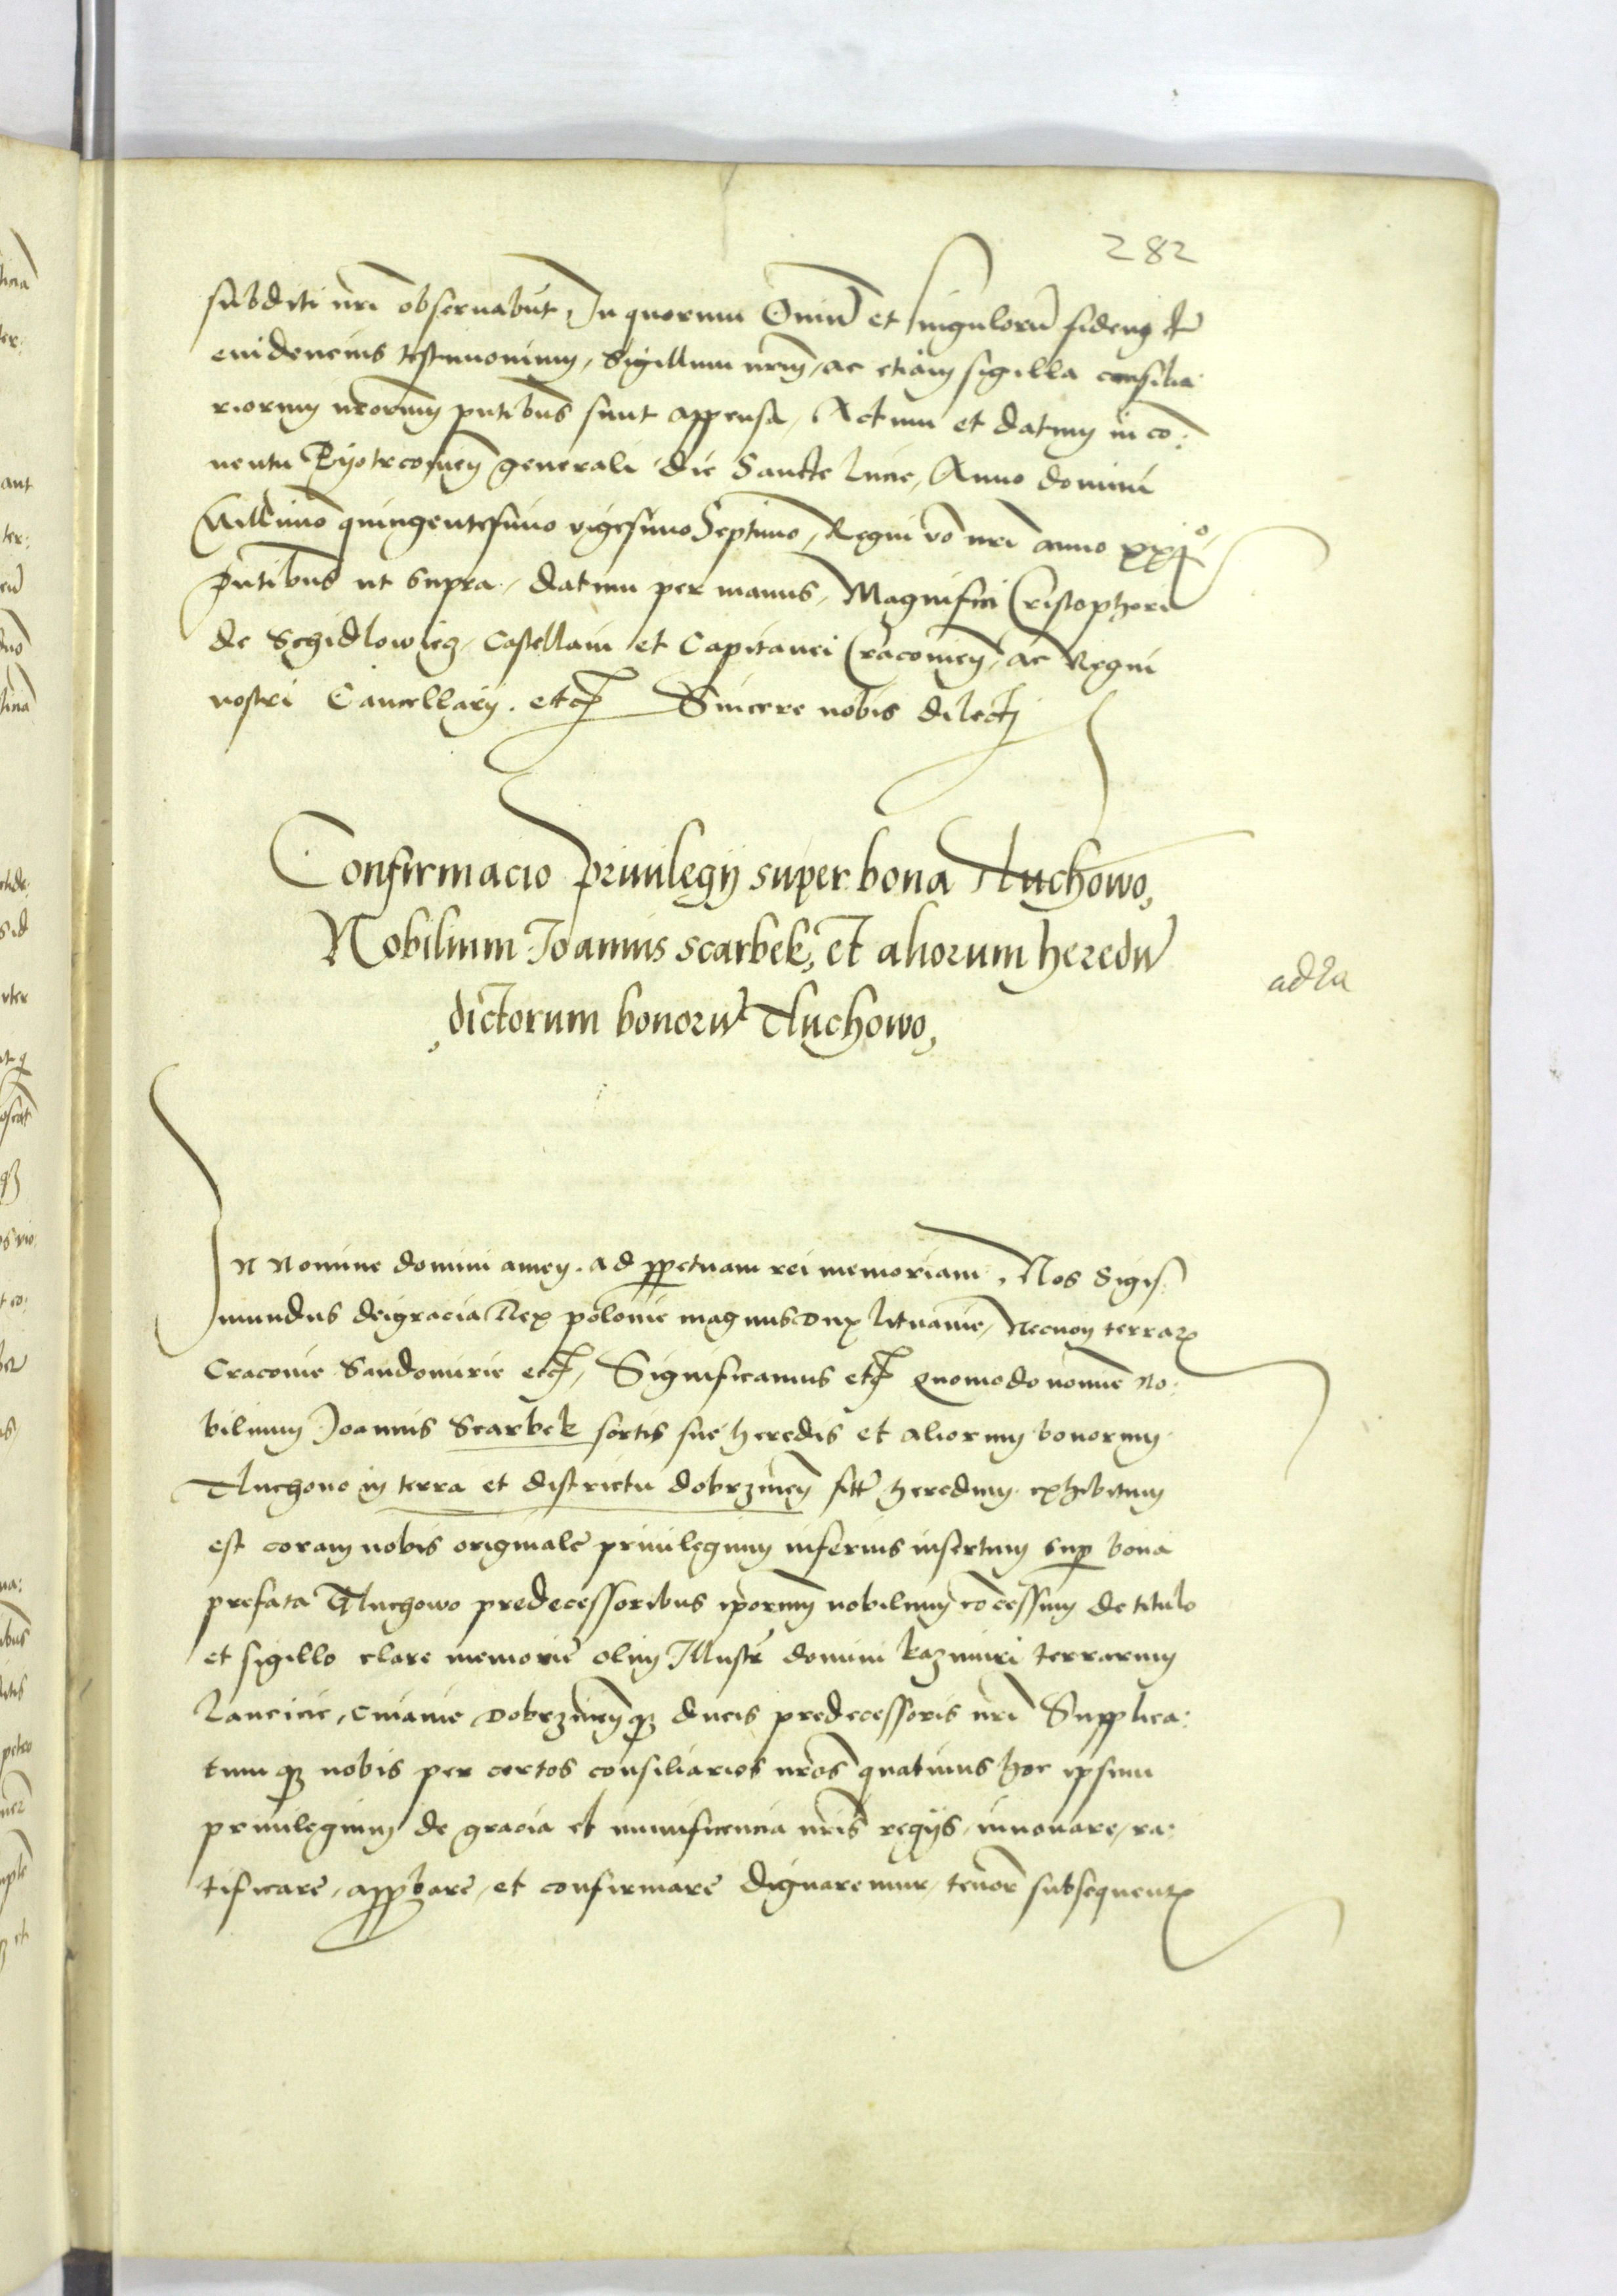 282
subditi nri observabut, In quorum Omiu et singuloru fidem et
evidencius testimonium, Sigillum nrm, ac etiam sigilla consilia:
riorum nrorum pntibus sunt appensa, Actum et datum in co:
ventu Pyotrcovien generali die Sancte Lucie, Anno domini
Millimo quingentesimo vigesimo Septimo, Regni vo nri anno xxjo
Pntibus ut supra, datum per manus, Magnifici Cristopheri
de Schidlowiecz, Castellani et Capitanei Cracovien, ac Regni
nostri Cancellarij. etc Sincere nobis dilecti
Confirmacio privilegij super bona Tluchowo,
Nobilium Joannis scarbek, et aliorum heredu
dictorum bonoru Tluchowo,
ad La
In Nomine domini amen. ad ppetuam rei memoriam, Nos Sigis:
mundus deigracia Rex polonie magnus Dux Lituanie, Necnon terrar
Cracovie Sandomirie etc, Significamus etc Quomodo nomine No:
bilium Joannis Scarbek sortis sue heredis et aliorum bonorum
Tluchovo in terra et districtu dobrzinen sitt heredum exhibitum
est coram nobis originale privilegium inferius insertum sup bona
prefata Tluchowo predecessoribus iporum nobilium cocessum de titulo
et sigillo clare memorie olim Illustr domini kazimiri terrarum
Lancicie, Cuiavie Dobrzinenq ducis predecessoris nri Supplica:
tumq nobis per certos consiliarios nros quatinus hoc ipsum
privilegium de gracia et munificencia nris regijs, innovare, ra:
tificare, appbare, et confirmare dignaremur, tenor subsequent